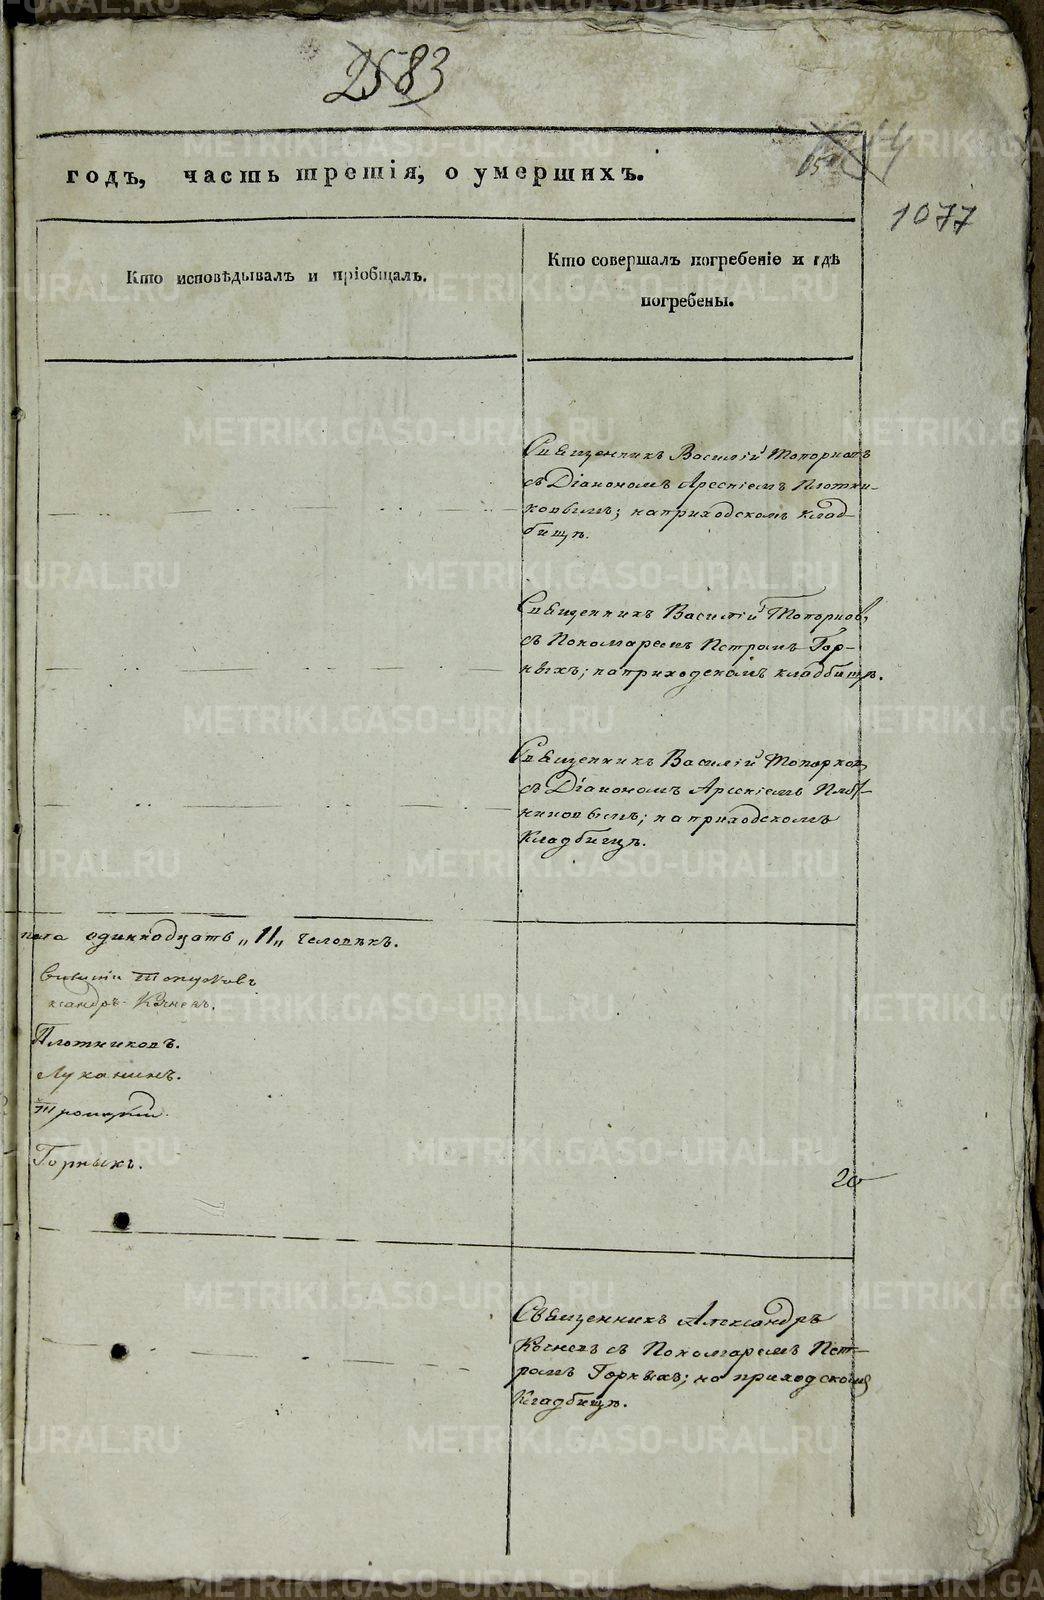 2583
1077
годъ, часть третія, о умершихъ.
Кто исповѣдывалъ и пріобщалъ.
Кто совершалъ погребеніе и гдѣ
погребены.
Священникъ Василій Топорковъ
съ Діакономъ Арсеніемъ Плотни-
ковымъ; на приходскомъ клад-
бищѣ.
Священникъ Василій Топорковъ
съ Пономаремъ Петромъ Гор-
ныхъ; на приходскомъ кладбищѣ.
Священникъ Василій Топорковъ
съ Діакономъ Арсеніемъ Плот-
никовымъ; на приходскомъ
Кладбищѣ.
пола одиннадцать „11„ человѣкъ.
Топорковъ
ксандръ Кочневъ.
Плотниковъ.
Луканинъ.
Троицкій.
Горныхъ.
20
Священникъ Александръ
Кочневъ съ Пономаремъ Пет-
ромъ Горныхъ; на приходскомъ
Кладбищѣ.
METRIKI.GASO-URAL.RU